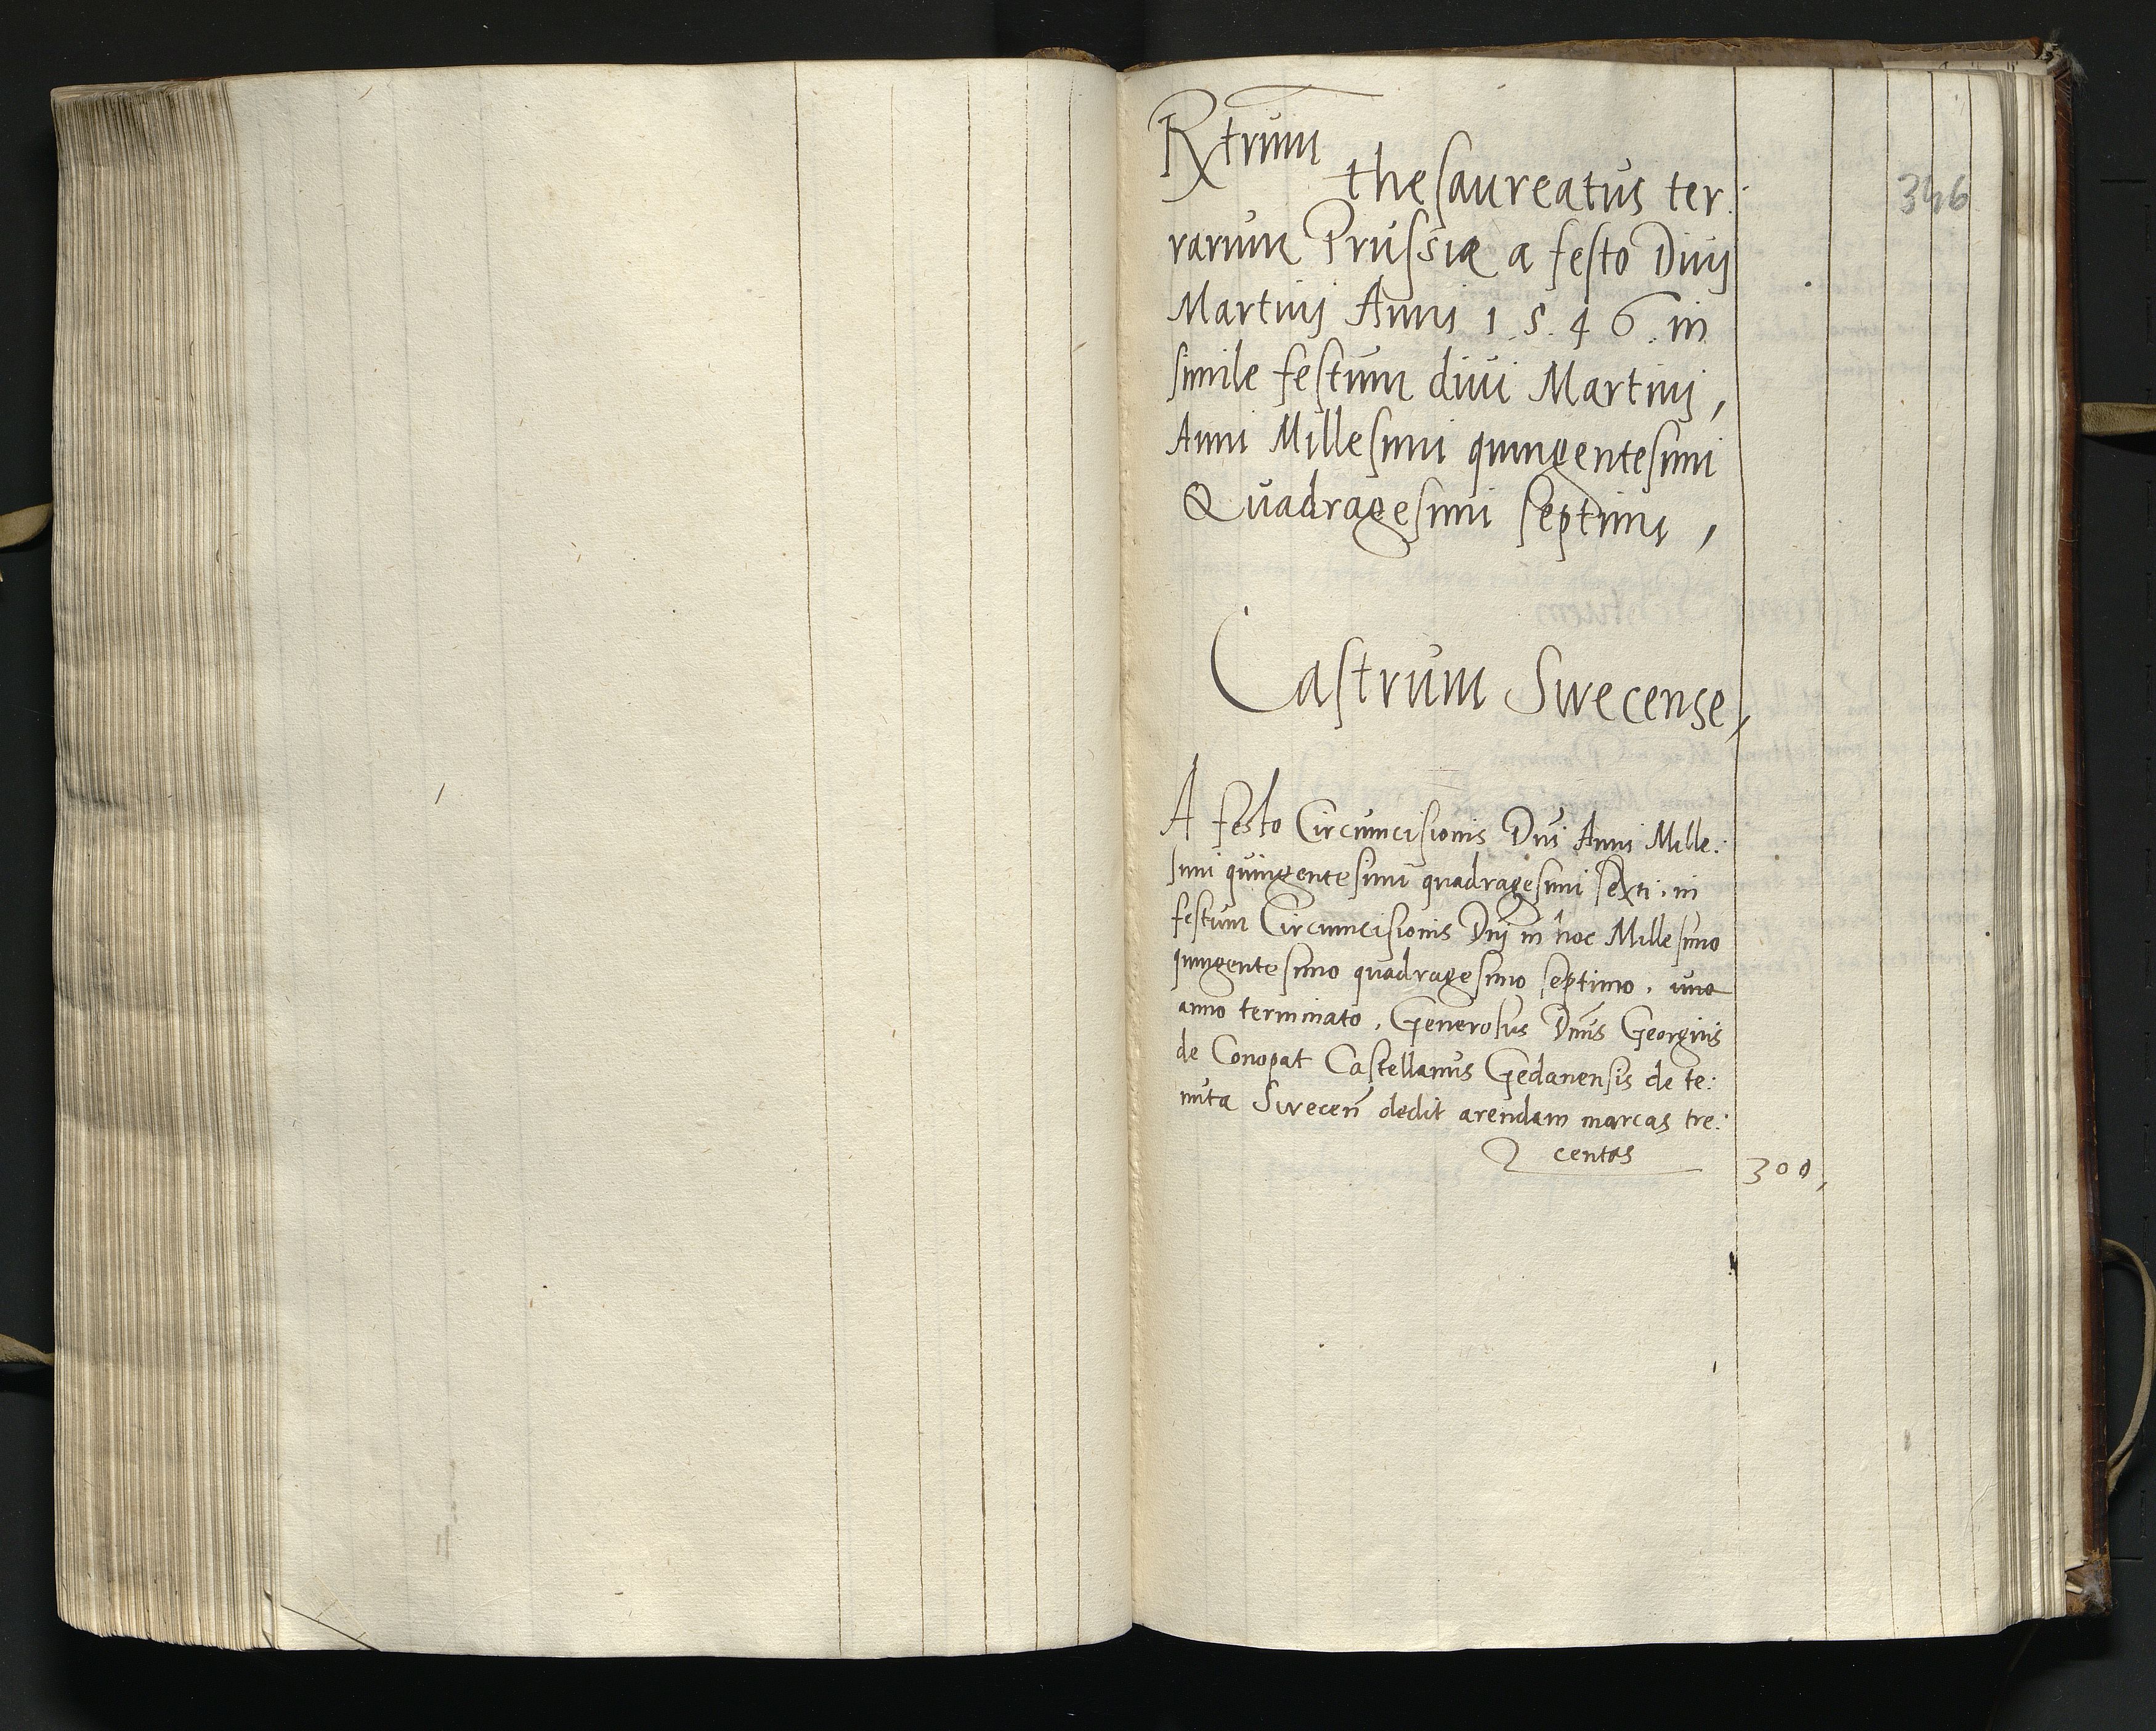 346
Rxtrum
thesaureatus ter:
rarum Prussiæ a festo Diuj
Martinj Anni 1.5.46. in
simile festum diui Martinj,
Anni Millesimi quingentesimi
Quadragesimi septimi,
Castrum Swecense,
A festo Circumcisionis Dni Anni Mille:
simi quingentesimi quadragesimi sexti. in
festum Circumcisionis Dnj in hoc Millesimo
quingentesimo quadragesimo septimo. uno
anno terminato. Generosus Dnus Georgius
de Conopat Castellanus Gedanensis de te:
nuta Swecen dedit arendam marcas tre:
centas
300,